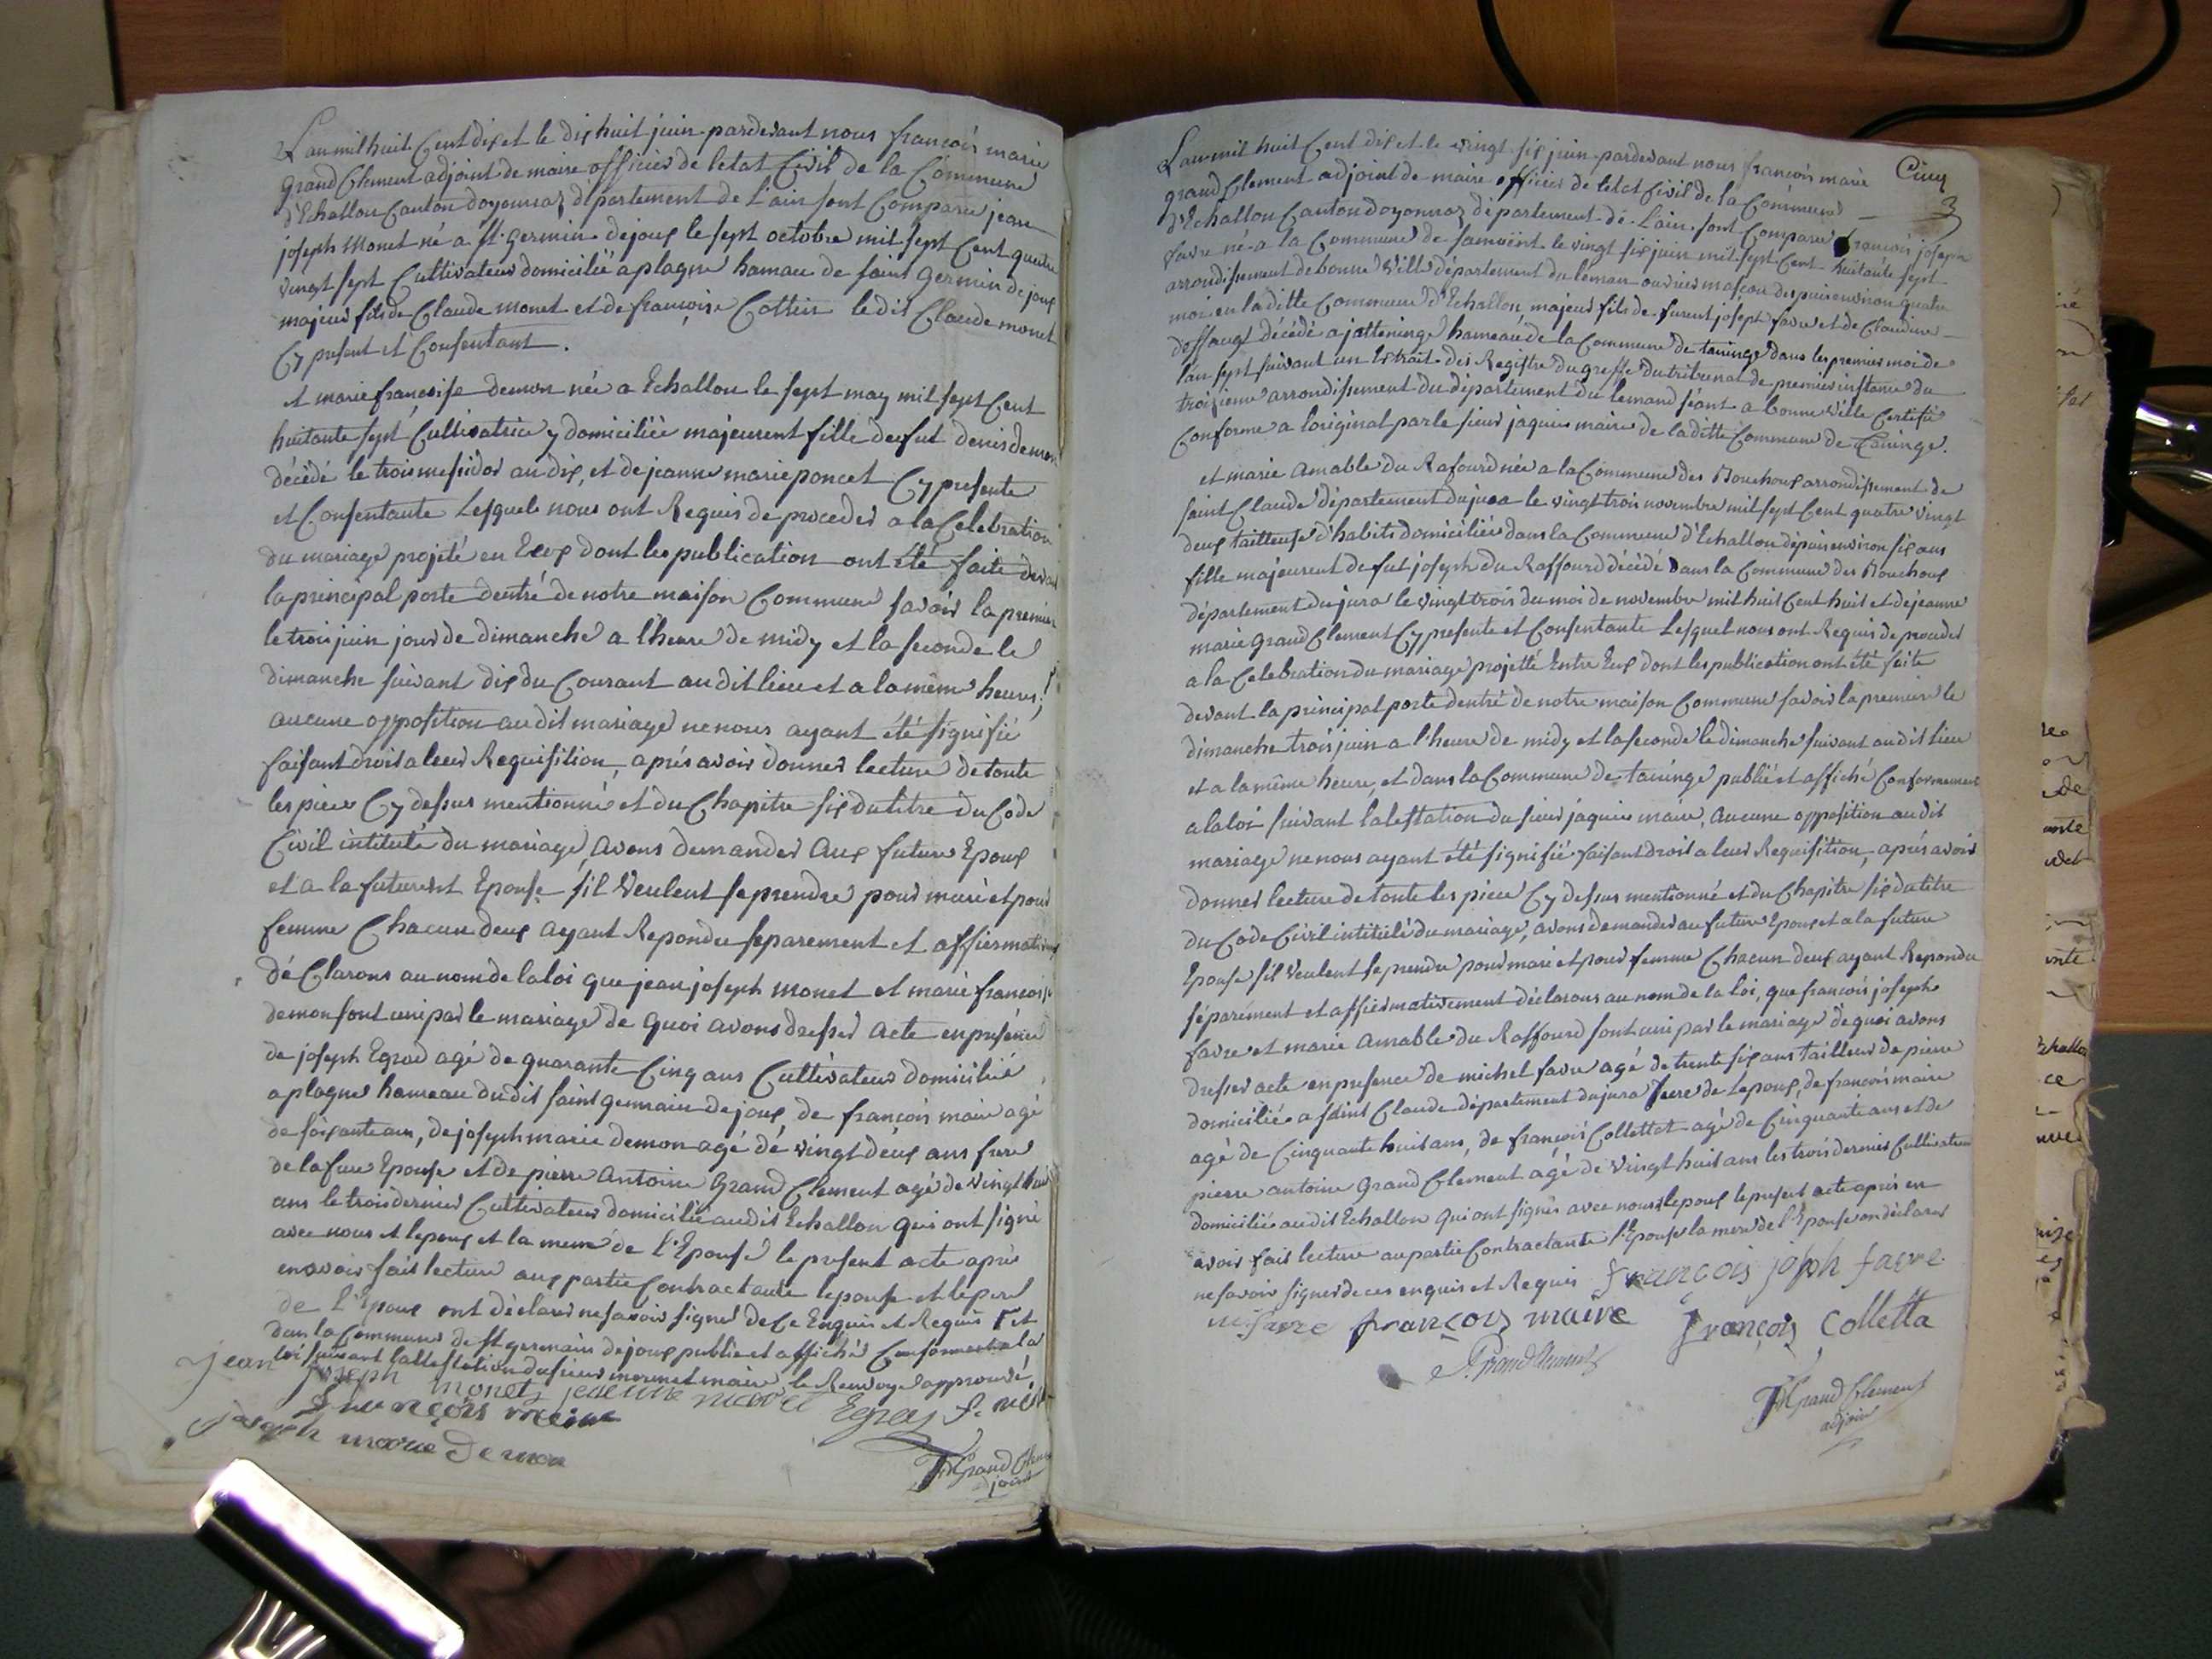 L'an mil huit Cent dix et le dix huit juin pardevant nous francois marie
grand Clement adjoint de maire officier de letat Civil de la Commune
d'Echallon Canton doyonnaz département de L'ain sont Comparu jean
joseph Monet né a St. germin dejoux le sept octobre mil sept Cent quatre
vingt sept Cultivateur domicilié a plagne hamau de saint Germin de joux
majeur fils de Claude monet et de françoise Cottin le dit Claude monet
Cy present et Consentant.
et marie francoise demon née a Echallon le sept may mil sept Cent
huitante sept Cultivatrice y domiciliée majeurent fille de fut denis demon
décédé le trois mesidor an dix, et de jeanne marie poncet Cy presente
et Consentante Lesquels nous ont Requis de proceder a la Celebration
du mariage projeté en Eux dont les publication ont été faite devant
la principal porte dentré de notre maison Commune savoir la premier
le trois juin jour de dimanche a l'heure de midy et la seconde le
dimanche suivant dix du Courant au dit lieu et a la même heures;
aucune opposition au dit mariage ne nous ayant été signifié
faisant droit a leur Requisition, aprés avoir donner lecture de toute
les pieces Cy dessus mentionné et du Chapitre six du titre du Code
Civil intitulé du mariage, avons demander aux future Epoux
et a la futurent Epouse s'il veulent se prendre pour mari et pour
femme Chacun deux ayant Repondu separement et affirmative
déClarons au nom de la loi que jean joseph monet et marie francoise
demon sont uni par le mariage de quoi avons dresser acte en présence
de joseph Egrad agé de quarante Cinq ans Cultivateur domicilié
a plagne hameau du dit saint germain de joux, de françois maire agé
de soixante ans, de joseph marie demon agé dé vingt déux ans frere
de la fure Epouse et de pierre antoine Grand Clement agé de vingt huit
ans le trois dernier Cultivateur domicilié au dit Echallon qui ont signé
avec nous et lepoux et la mere de l'Epouse le present acte aprés
en avoir fait lecture aux partie Contractante lepouse et le pere
de l'Epoux ont déclarer ne savoir signer de Ce Enquis et Requis et
dans la Commune de St. germain de joux publié et affiché Conforment a la
loi suivant lattestation du sieur maire le Renvoye approuvé
Jean joseph monet jeanne marie
francois maire Egraz
joseph marie Demon
fm Grand Clement
adjoint
Cinq
3
L'an mil huit Cent dix et le vingt six juin pardevant nous francois marie
grand Clement adjoint de maire officier de letat Civil de la Commune
d'Echallon Canton doyonnaz département de L'ain sont Comparu françois joseph
favre né a la Commune de samoënt le vingt six juin mil sept Cent huitante sept
arrondissement de bonne Ville département du léman ouvrier mascon depuis environ quatre
moi en la ditte Commune d'Echallon, majeur fils de furent joseph favre et de Claudine
deffaugt décédé a jatteninge hameau de la Commune de taninge dans les premier moi de
l'an sept suivant un Extrait des Registre du greffe du tribunal de premier instance du
troisieme arrondissement du département du lemand séant a bonne Ville Certifié
Conforme a loriginal par le sieur jaquier maire de la ditte Commune de taninge.
et marie amable du Rafourd née a la Commune des Bouchoux arrondissement de
saint Claude département du jura le vingt trois novembre mil sept Cent quatre vingt
deux tailleuse d'habits domiciliée dans la Commune d'Echallon depuis environ six ans
fille majeurent de fut joseph du Raffourd décédé dans la Commune des Bouchoux
département du jura le vingt trois du moi de novembre mil huit Cent huit et de jeanne
marie Grand Clement Cy presente et Consentante Lesquel nous ont Requis de proceder
a la Celebration du mariage projetté Entre Eux dont les publication ont été faite
devant la principal porte dentré de notre maison Commune savoir la premiere le
dimanche trois juin a l'heure de midy et la seconde le dimanche suivant au dit lieu
et a la même heure, et dans la Commune de taninge publié et affiché Conformement
a la loi suivant latestation du sieur jaquier maire, aucune opposition au dit
mariage ne nous ayant été signifié faisant droit a leur Requisition, aprés avoir
donner lecture de toute les piece Cy dessus mentionné et du Chapitre six du titre
du Code Civil intitulé du mariage, avons demander au future Epoux et a la future
Epouse s'il veulent se prendre pour mari et pour femme Chacun deux ayant Repondu
séparément et affirmativement déclarons au nom de la loi, que françois joseph
favre et marie amable du Raffourd sont uni par le mariage de quoi avons
dresser acte en presence de michel favre agé de trente six ans tailleur de pierre
domicilié a saint Claude département du jura frere de Lepoux, de francois maire
agé de Cinquante huit ans, de françois Collettat agé de Cinquante ans et de
pierre antoine Grand Clement agé de vingt huit ans les trois dernier Cultivateur
domicilié au dit Echallon qui ont signés avec nous et lepoux le present acte aprés en
avoir fait lecture au partie Contractante l'Epouse la mere de l'Epouse on déclarer
ne savoir signer de ces enquis et Requis françois joseph favre
m. favre françois maire françois Colletta
P. Grand Clement
fm Grand Clement
adjoint